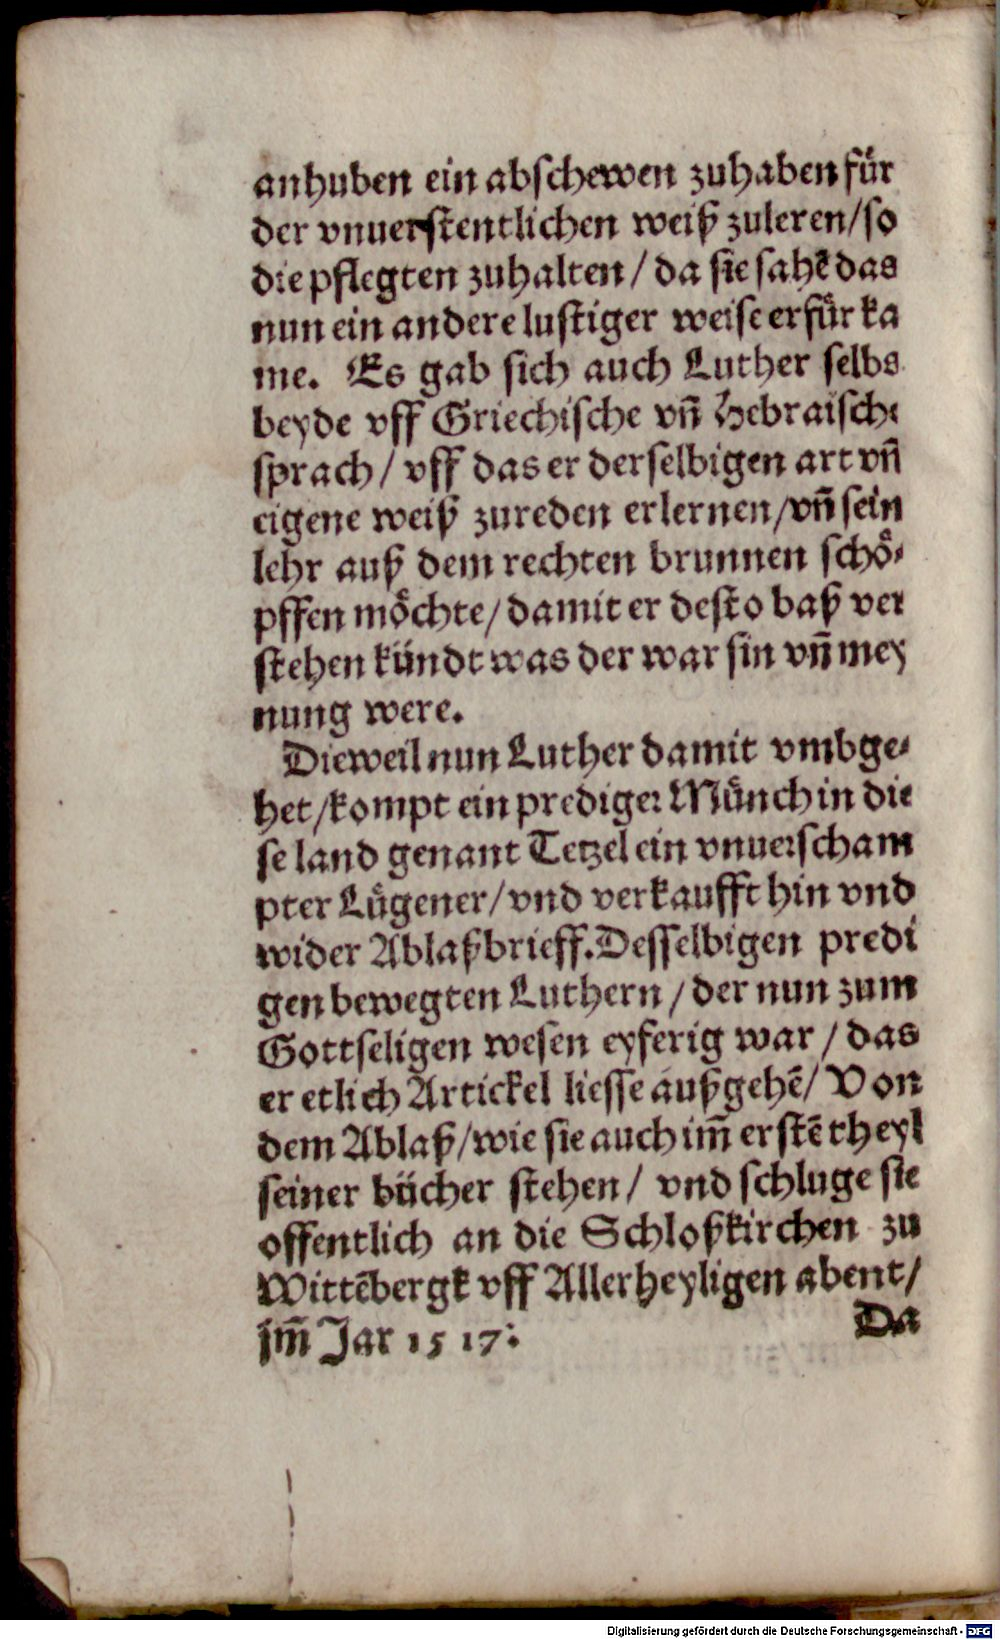 anhuben ein abschewen zuhaben für
der vnuerstentlichen weiß zuleren/so
die pflegten zuhalten/ da sie sahē das
nun ein andere lustiger weise erfür ka
me. Es gab sich auch Luther selbs
beyde vff Griechische vñ Hebraische
sprach/ vff das er derselbigen art vñ
eigene weiß zureden erlernen/vñ sein
lehr auß dem rechten brunnen schö⸗
pffen möchte/ damit er desto baß ver
stehen kündt was der war sin vñ mey
nung were.
Dieweil nun Luther damit vmbge⸗
het/kompt ein prediger Münch in die
se land genant Tetzel ein vnuerscham
pter Lügener/ vnd verkaufft hin vnd
wider Ablaßbrieff. Desselbigen predi
gen bewegten Luthern/ der nun zum
Gottseligen wesen eyferig war/ das
er etlich Artickel liesse außgehē/ Von
dem Ablaß/wie sie auch im̃ erstē theyl
seiner bücher stehen/ vnd schluge sie
offentlich an die Schloßkirchen zu
Wittēbergk vff Allerheyligen abent/
im̃ Jar 1517:
Da
Digitalisierung gefördert durch die Deutsche Forschungsgemeinschaft - DFG